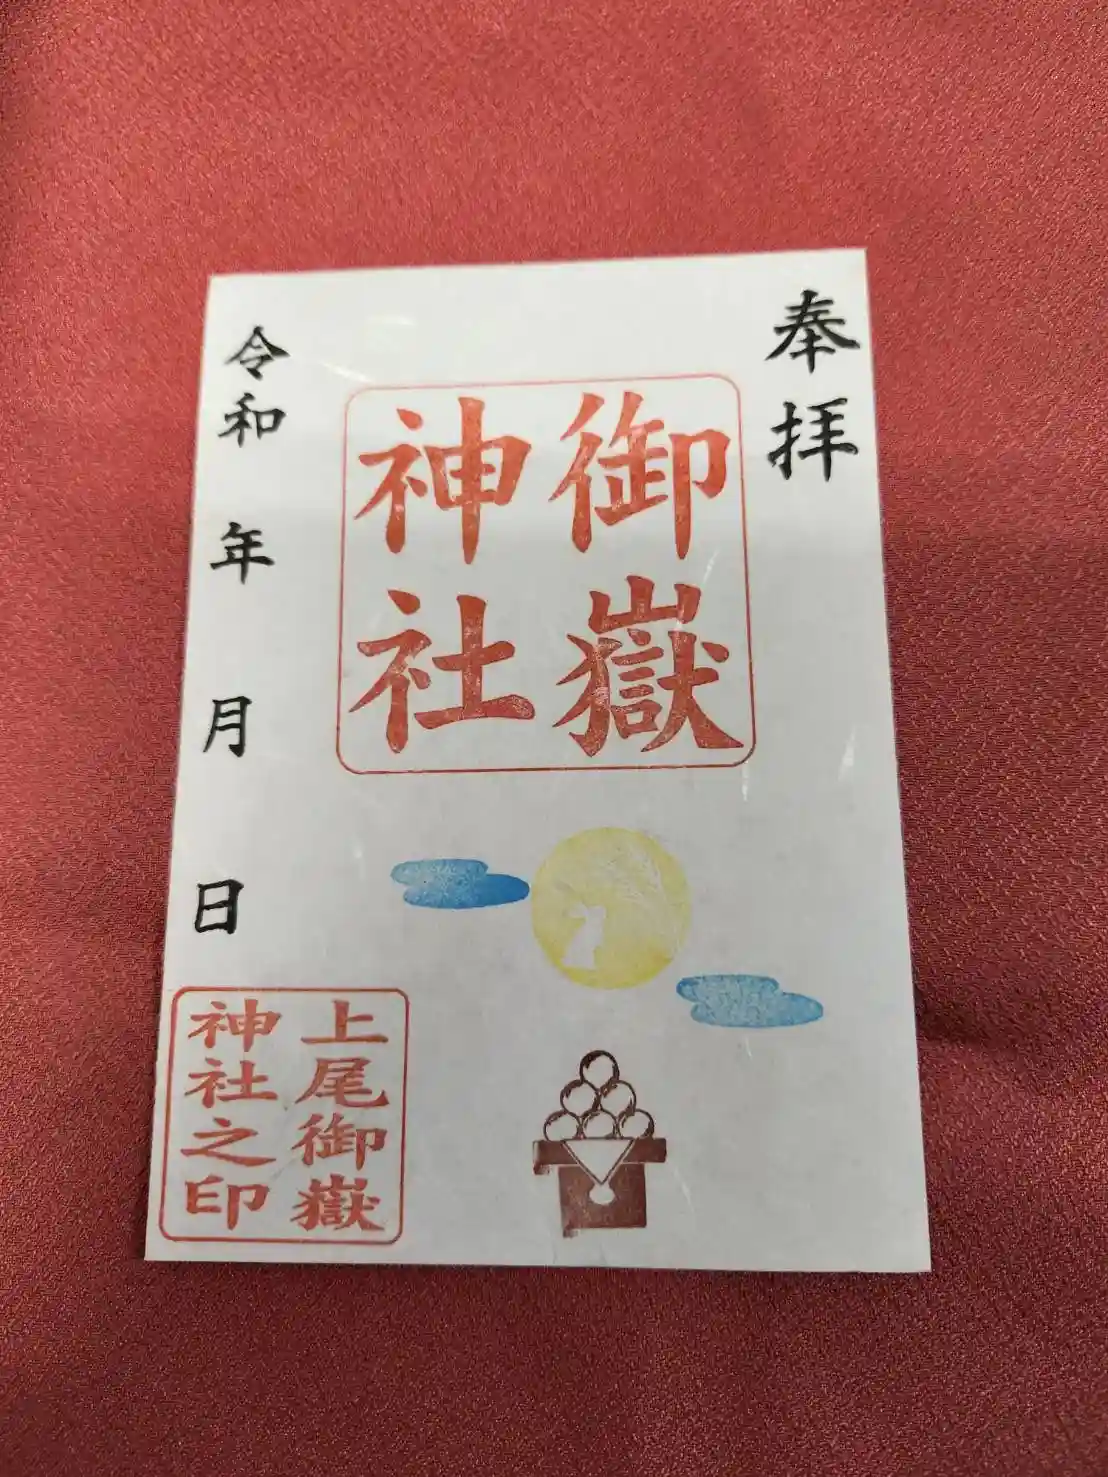 奉拝
御嶽
神社
令和 年 月 日
上尾御嶽
神社之印